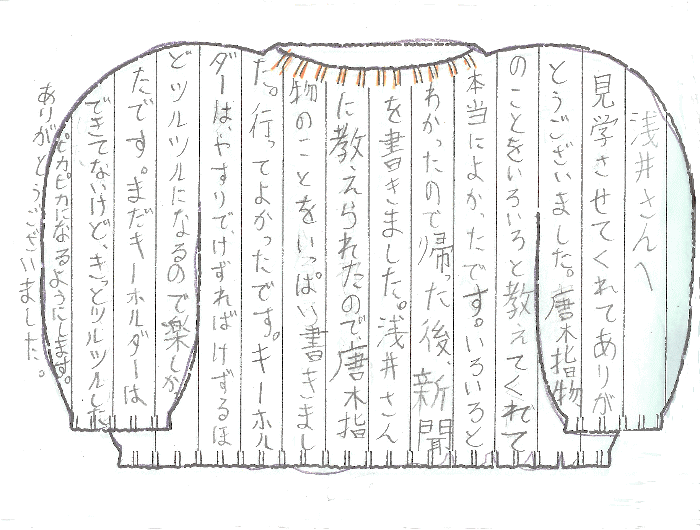 浅井さんへ
見学させてくれてありが
とうございました。唐木指物
のことをいろいろと教えてくれて
本当によかったです。いろいろと
わかったので帰った後、新聞
を書きました。浅井さん
に教えられたので、唐木指
物のことをいっぱい書きまし
た。行ってよかったです。キーホル
ダーは、やすりで、けずればけずるほ
どツルツルになるので楽しか
たです。まだキーホルダーは
できてないけど、きっとツルツルした
ピカピカになるようにします。
ありがとうございました。